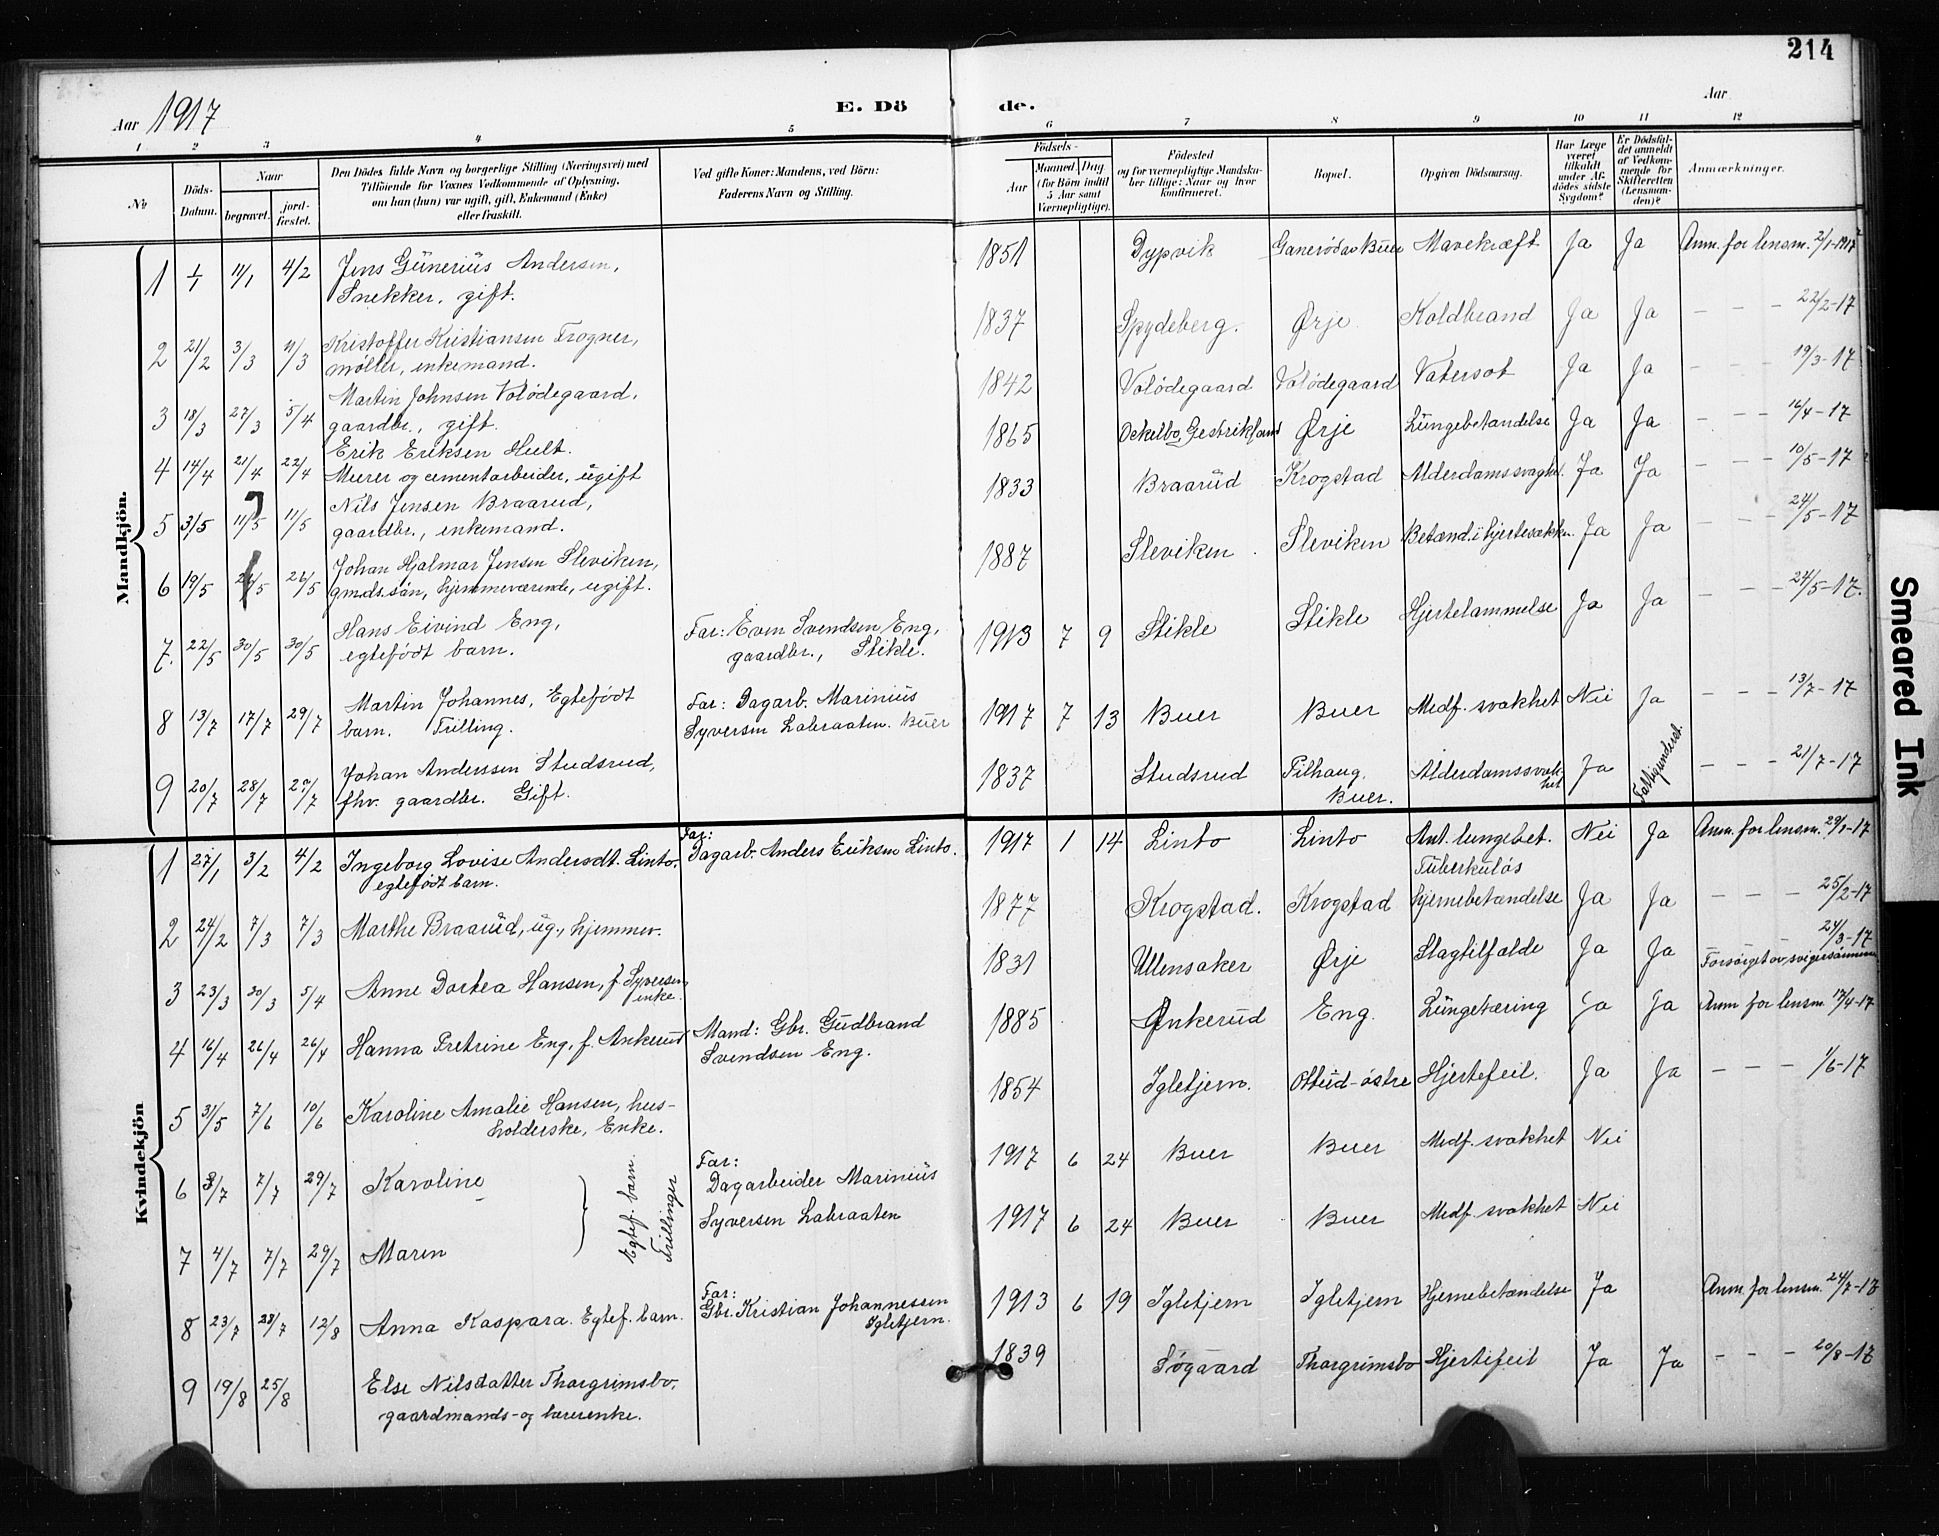 214
Aar 1917
E. Dö de.
Aar
1 2 3 4 5 6 7 8 9 10 11 12
No.
Döds-Datum.
Naar
begravet.
jord-fæstet.
Den Dödes fulde Navn og borgerlige Stilling (Næringsvei) med
Tilföiende for Voxnes Vedkommende af Oplysning,
om han (hun) var ugift, gift, Enkemand (Enke)
eller fraskilt.
Ved gifte Koner: Mandens, ved Börn:
Faderens Navn og Stilling.
Födsels-
Aar
Maaned. Dag
(for Börn indtil
5 Aar samt
Værnepligtige).
Födested
og for værnepligtige Mandska-
ber tillige: Naar og hvor
konfirmeret.
Bopæl.
Opgiven Dödsaarsag.
Har Læge
været
tilkaldt
under Af-
dödes sidste
Sygdom?
Er Dödsfal-
det anmeldt
af Vedkom-
mende for
Skifteretten
(Lensman-
den)?
Anmærkninger.
Mandkjön.
1 1/1 11/1 4/2 Jens Günerius Andersen, 1851 Dypvik Ganerödsv Buer Mavekræft Ja Ja Anm. for lensm. 2/1-1917
Snekker, gift.
2 21/2 3/3 4/3 Kristoffer Kristiansen Trogner, 1837 Spydeberg. Ørje Koldbrand Ja Ja — — — 22/2-17
møller, enkemand.
3 18/3 27/3 5/4 Martin Johnsen Volødegaard, 1842 Volödegaard Volödegaard Vatersot Ja Ja — — — 19/3-17
gaardbr., gift.
4 14/4 21/4 22/4 Erik Eriksen Hult. 1865 Ockelbo, Gestrikland Ørje Lüngebetændelse Ja Ja — — — 16/4-17
Murer og cementarbeider, ugift
5 3/5 11/5 11/5 Nils Jensen Braarud, 1833 Braarüd Krogstad Alderdomssvaghet. Ja Ja — — — 10/5-17
gaardbr., enkemand.
6 19/5 26/5 26/5 Johan Hjalmar Jensen Sleviken, 1887 Sleviken Sleviken Betænd. i hjertesækken. Ja Ja — — — 24/5-17
gmds. sön, hjemmeværende, ugift.
7. 22/5 30/5 30/5 Hans Eivind Eng, Far: Even Svendsen Eng, 1913 7 9 Stikle Stikle Hjertelammelse Ja Ja — — — 24/5-17.
egtefödt barn. gaardbr., Stikle.
8 13/7 17/7 29/7 Martin Johannes, Egtefödt Far: Dagarb. Marinius 1917 7 13 Buer Buer Medf. svakhet Nei Ja — — — 13/7-17
barn. Trilling. Syversen Labraaten. Buer
9 20/7 28/7 29/7 Johan Anderssen Studsrud, 1837 Studsrud Tilhaug, Alderdomssvak- Ja Fattigunderst. — — — 21/7-17
fhv. gaardbr. Gift. Buer. het
Kvindekjön
Far:
1 27/1 3/2 4/2 Ingeborg Lovise Andersdt. Linto, Dagarb. Anders Eriksen Linto. 1917 1 14 Linto Linto Ant. lungebet. Nei Ja Anm. for lensm. 29/1-17
egtefödt barn.
Tüberkuløs
2 24/2 7/3 7/3 Marthe Braarüd, ug., hjemmev. 1877 Krogstad. Krogstad hjernebetændelse Ja Ja — — — 25/2-17
3 23/3 30/3 5/4 Anne Dortea Hansen, f. Syversen, 1831 Ullensaker Ørje Slagtilfælde Ja Ja 24/3-17
enke. Forsörget av svigersönnen
4 16/4 26/4 26/4 Hanna Petrine Eng, f. Ankerud Mand: Gbr. Gudbrand 1885 Ankerud Eng. Lüngetæring Ja Ja Anm for lensm. 17/4-17
Svendsen Eng.
5 31/5 7/6 10/6 Karoline Amalie Hansen, hus- 1854 Igletjern. Ottüd-östre Hjertefeil. Ja Ja — — — 1/6-17
holderske, Enke.
6 3/7 7/7 29/7 Karoline Egtef. barn. Trillinger Far: 1917 6 24 Buer Buer Medf. svakhet Nei
Dagarbeider Marinius
Syversen Labraaten
7 4/7 7/7 29/7 Maren 1917 6 24 Buer Buer Medf. svakhet Nei
Far:
8 23/7 28/7 12/8 Anna Kaspara. Egtef. barn. Gbr. Kristian Johannessen 1913 6 19 Igletjern Igletjern Hjernebetændelse Ja Anm. for lensm. 24/7-17
Igletjern.
9 19/8 25/8 Else Nilsdatter Thorgrimsbo, 1839 Søgaard Thorgrimsbo Hjertefeil Ja Ja — — — 20/8-17
gaardmands- og lærerenke.
Smeared Ink